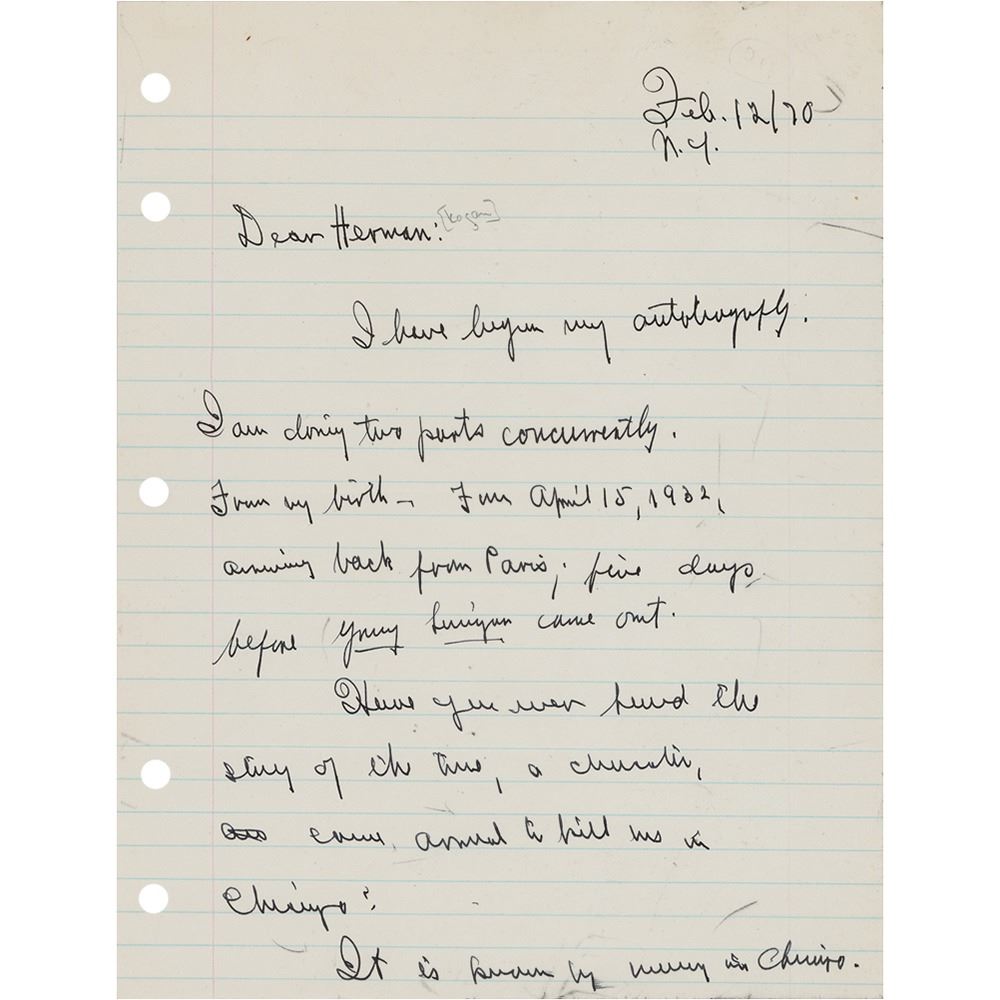 Feb. 12/70
N.Y.
Dear Herman: [Kogan]
I have begun my autobiography.
I am doing two parts concurrently.
From my birth – From April 15, 1932,
arriving back from Paris, five days
before Young Lonigan came out.
Have you ever heard the
story of the time, a character,
came around to kill me in
Chicago?
It is known by many in Chicago.